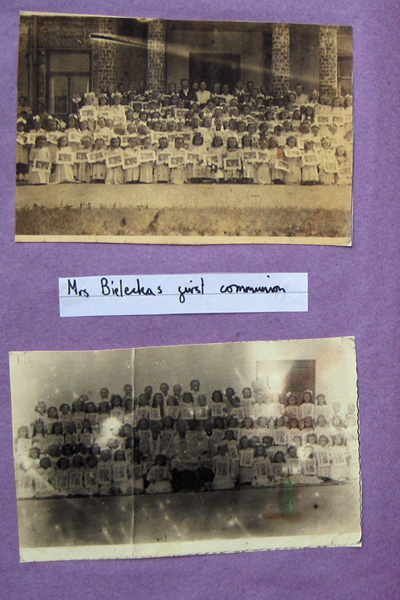 Mrs Bieleckas first communion